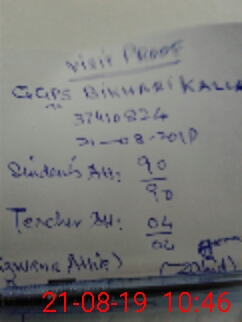 Visit PROOF
GGPS BIKHARI KALLA
37410824
21-08-2019
Student's Att: 90/90
Teacher Att: 04/04
21-08-19 10:46